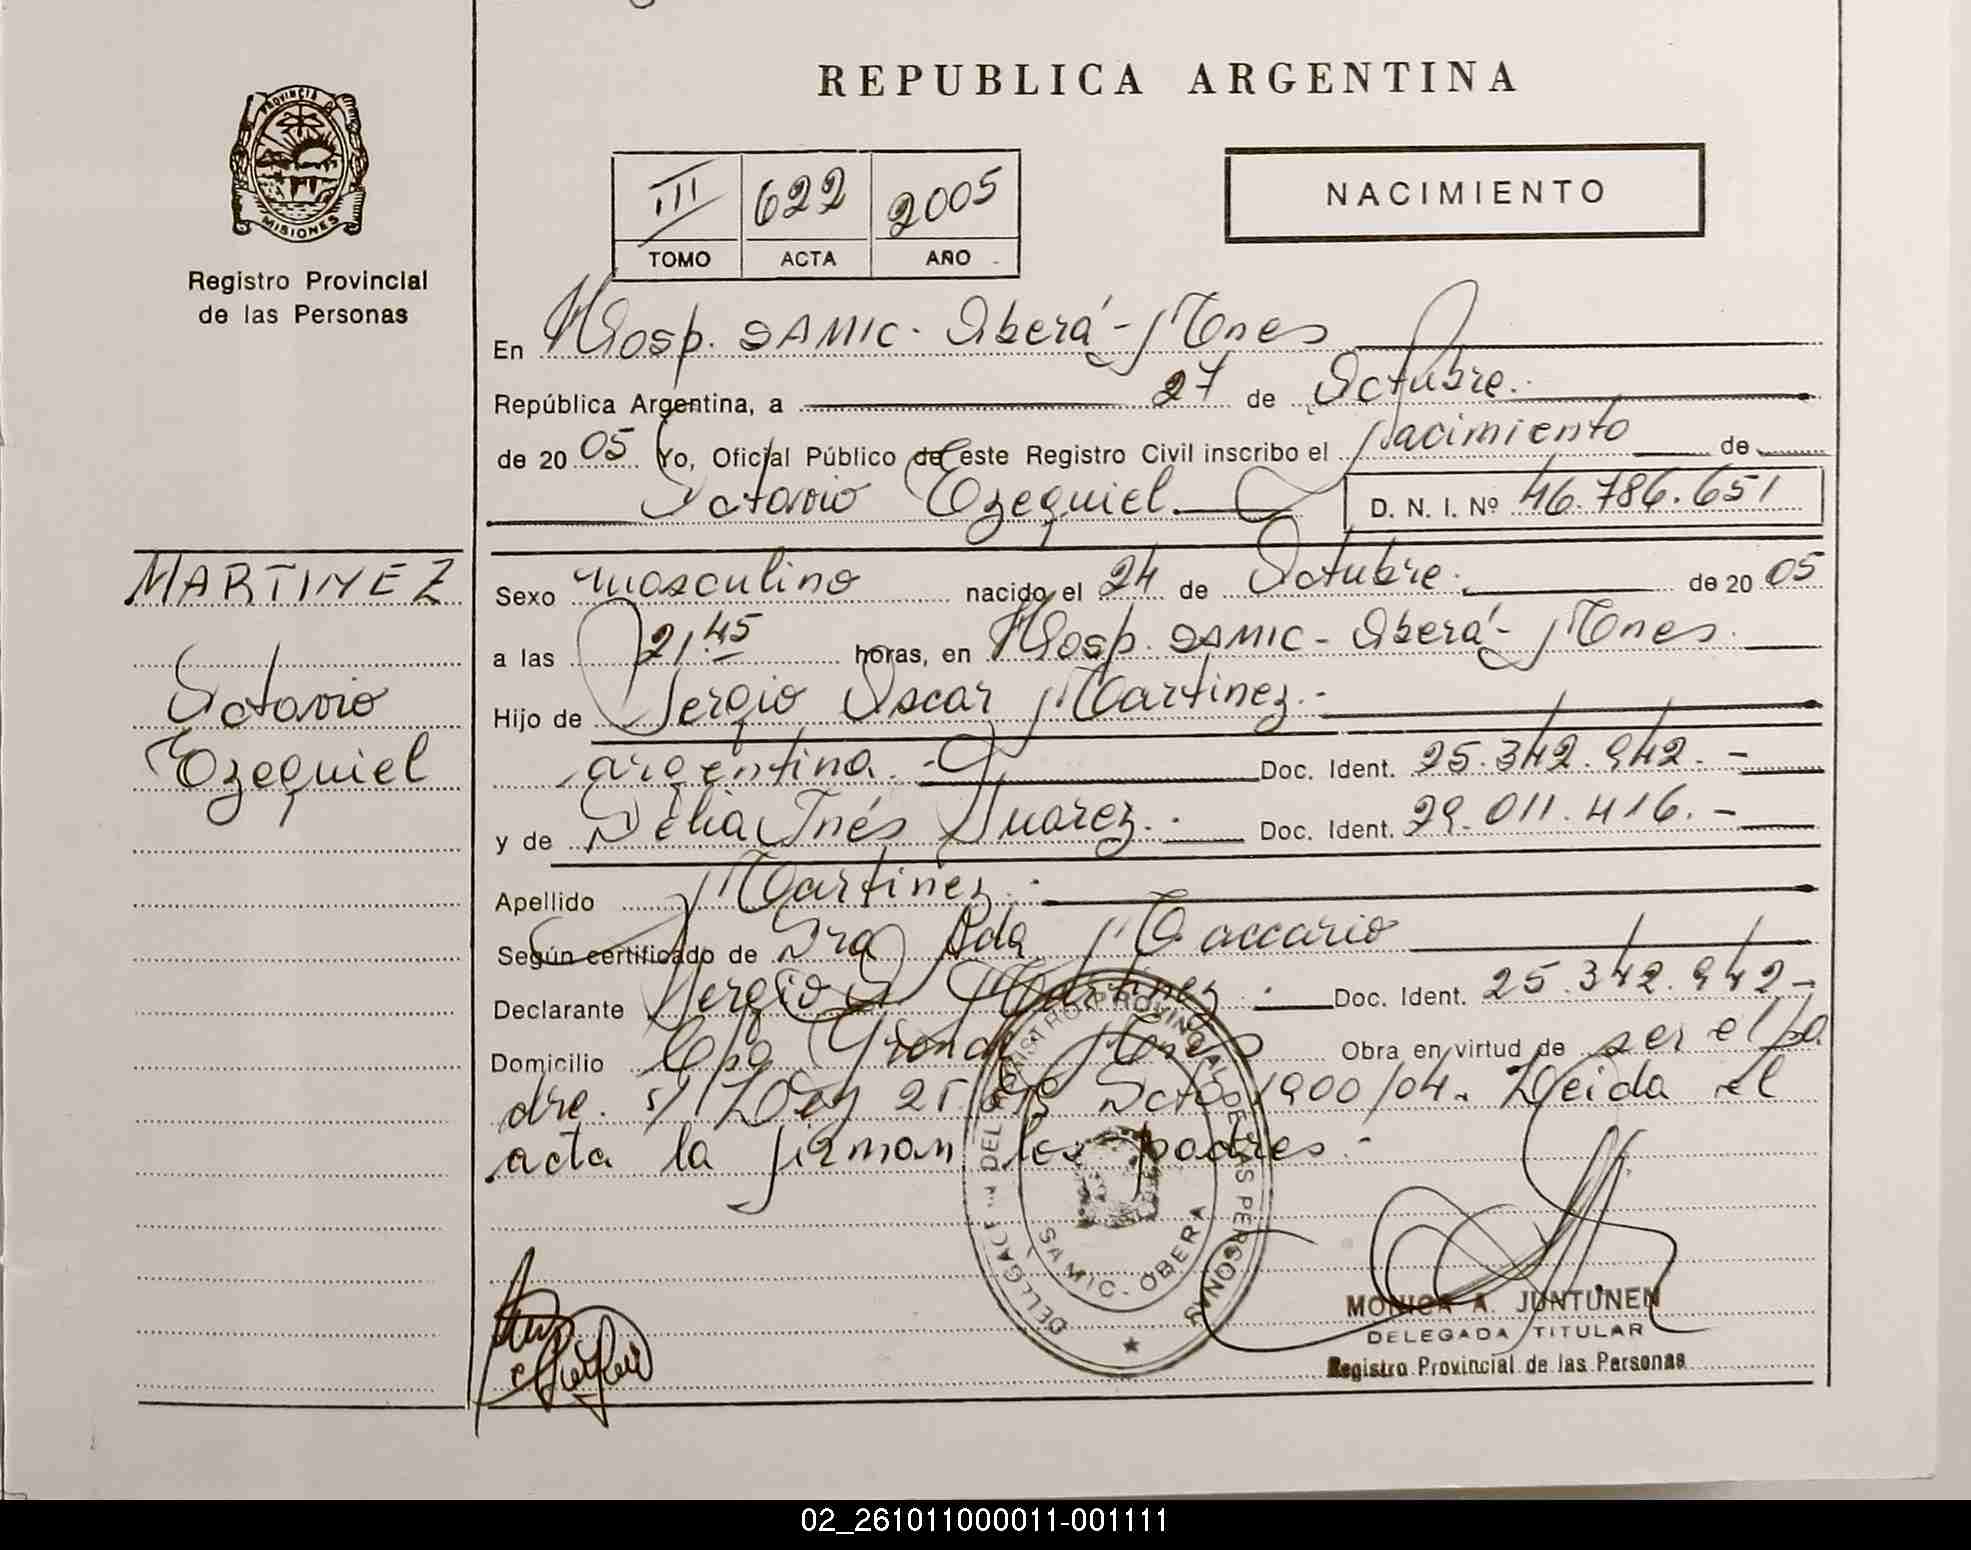 REPUBLICA ARGENTINA
PROVINCIA DE
MISIONES
Registro Provincial
de las Personas
III 622 2005
TOMO ACTA AÑO
NACIMIENTO
En Hosp. SAMIC - Oberá - Mnes
República Argentina, a 27 de Octubre.
de 20 05 Yo, Oficial Público de este Registro Civil inscribo el Nacimiento de
Octavio Ezequiel D. N. I. Nº 46.786.651
MARTINEZ
Octavio
Ezequiel
Sexo masculino nacido el 24 de Octubre. de 20 05
a las 21.45 horas, en Hosp. SAMIC - Oberá - Mnes.
Hijo de Sergio Oscar Martinez.-
argentina.- Doc. Ident. 25.342.942.-
y de Delia Inés Suarez.- Doc. Ident. 29.011.416.-
Apellido Martinez.-
Según certificado de Dra Ada Maccario
Declarante Sergio O. Martinez.- Doc. Ident. 25.342.942-
Domicilio Cpo Grande Mnes Obra en virtud de ser el pa
dre. s/ Ley Dcto 1900/04. Leida el
acta la firman los padres.-
DELEGACIÓN DEL REGISTRO PROVINCIAL DE LAS PERSONAS
SAMIC - OBERA
MONICA A. JUNTUNEN
DELEGADA TITULAR
Registro Provincial de las Personas
02_261011000011-001111